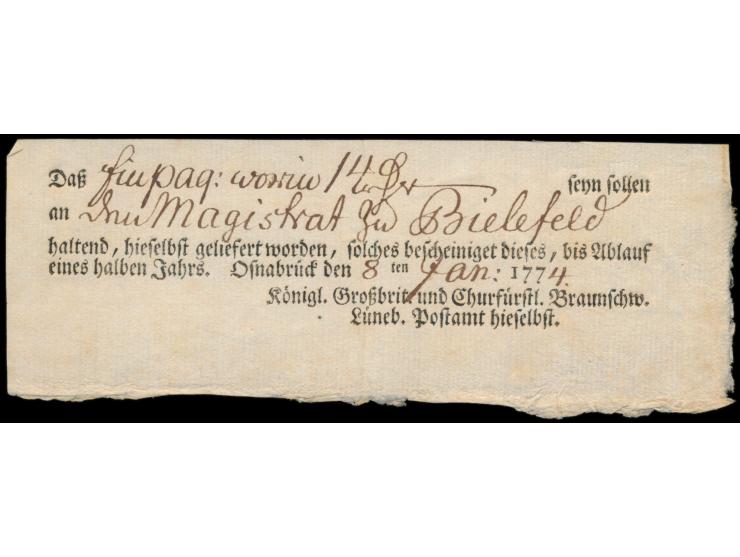 Daß Ein paq: worin 14 seyn sollen
an den Magistrat zu Bielefeld
haltend, hieselbst geliefert worden, solches bescheiniget dieses, bis Ablauf
eines halben Jahrs. Osnabrück den 8 ten Jan: 1774.
Königl. Großbrit. und Churfürstl. Braunschw.
Lüneb. Postamt hieselbst.